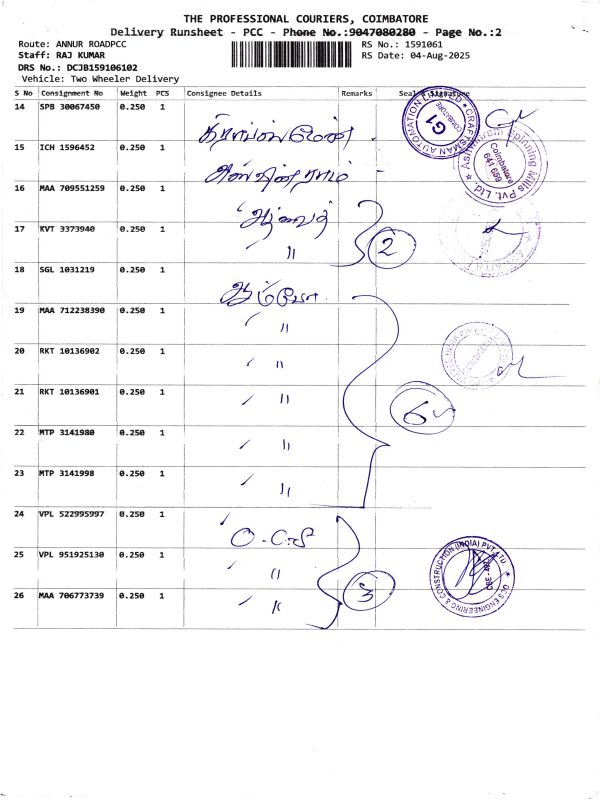 THE PROFESSIONAL COURIERS, COIMBATORE
Delivery Runsheet - PCC - Phone No.:9047080280 - Page No.:2
Route: ANNUR ROADPCC
Staff: RAJ KUMAR
DRS No.: DCJB159106102
Vehicle: Two Wheeler Delivery
RS No.: 1591061
RS Date: 04-Aug-2025
S No Consignment No Weight PCS Consignee Details Remarks Seal & Signature
14 SPB 30067450 0.250 1
கிராப்ஸ்மேன்
CRAFTSMAN AUTOMATION LIMITED
COIMBATORE
G1
15 ICH 1596452 0.250 1
அஸ்வின்ராம்
Ashwinram Spinning Mills Pvt. Ltd
Coimbatore
641 669
16 MAA 709551259 0.250 1
17 KVT 3373940 0.250 1
"
2
18 SGL 1031219 0.250 1
19 MAA 712238390 0.250 1
"
20 RKT 10136902 0.250 1
"
21 RKT 10136901 0.250 1
"
6
22 MTP 3141980 0.250 1
"
23 MTP 3141998 0.250 1
"
24 VPL 522995997 0.250 1
O.C.S
25 VPL 951925130 0.250 1
"
26 MAA 706773739 0.250 1
"
3
OCS ENGINEERING & CONSTRUCTION (INDIA) PVT LTD